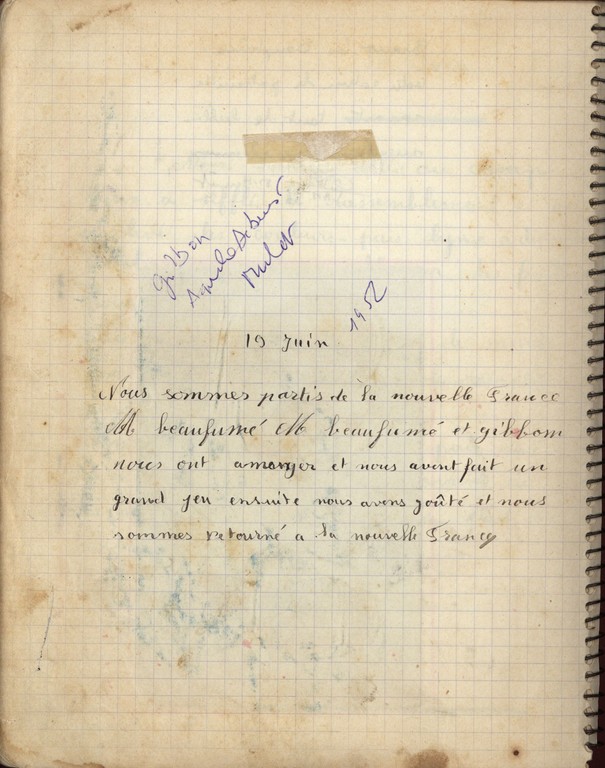 Gibbon
1952
19 Juin
Nous sommes partis de la nouvelle France
M beaufumé M beaufumé et gibbom
nous ont amanger et nous avont fait un
grand jeu ensuite nous avons goûté et nous
sommes retourné a la nouvelle France